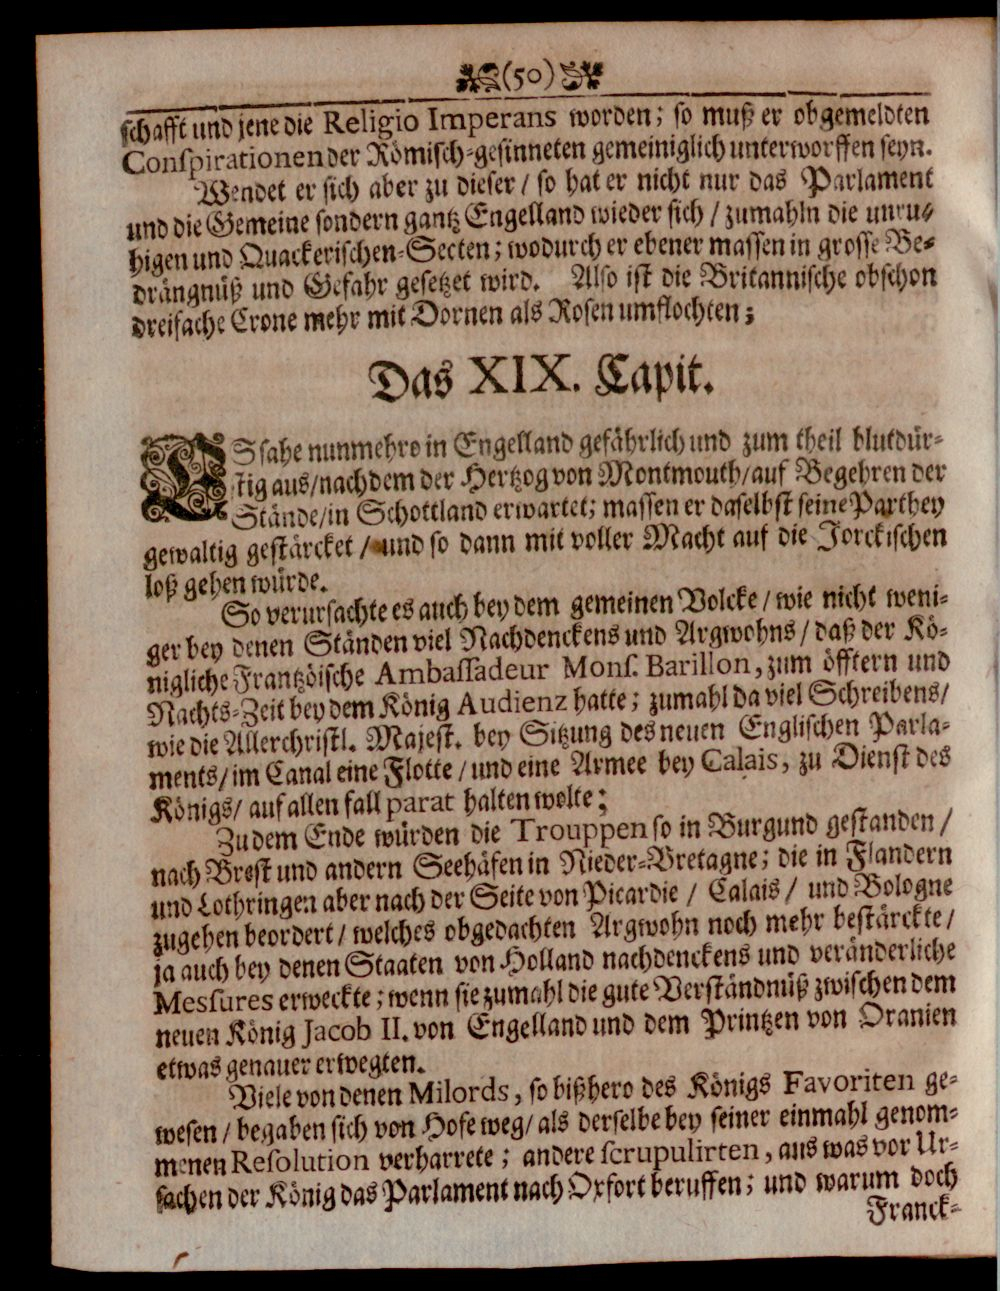 (50)
schafft und jene die Religio Imperans worden; so muß er obgemeldten
Conspirationen der Römisch-gesinneten gemeiniglich unterworffen seyn.
Wendet er sich aber zu dieser / so hat er nicht nur das Parlament
und die Gemeine sondern gantz Engelland wieder sich / zumahln die unru-
higen und Quackerischen-Secten; wodurch er ebener massen in grosse Be-
drängnüß und Gefahr gesetzet wird. Also ist die Britannische obschon
dreifache Crone mehr mit Dornen als Rosen umflochten;
Das XIX. Capit.
ES sahe nunmehro in Engelland gefährlich und zum theil blutdür-
stig aus/nachdem der Hertzog von Montmouth/auf Begehren der
Stände/in Schottland erwartet; massen er daselbst seine Parthey
gewaltig gestärcket / und so dann mit voller Macht auf die Jorckischen
loß gehen würde.
So verursachte es auch bey dem gemeinen Volcke / wie nicht weni-
ger bey denen Ständen viel Nachdenckens und Argwohns / daß der Kö-
nigliche Frantzöische Ambassadeur Mons. Barillon, zum öfftern und
Nachts-Zeit bey dem König Audienz hatte; zumahl da viel Schreibens/
wie die Allerchristl. Majest. bey Sitzung des neuen Englischen Parla-
ments/im Canal eine Flotte / und eine Armee bey Calais, zu Dienst des
Königs/ auf allen fall parat halten wolte;
Zu dem Ende würden die Trouppen so in Burgund gestanden /
nach Brest und andern Seehäfen in Nieder-Bretagne; die in Flandern
und Lothringen aber nach der Seite von Picardie / Calais / und Bologne
zugehen beordert / welches obgedachten Argwohn noch mehr bestärckte /
ja auch bey denen Staaten von Holland nachdenckens und veränderliche
Messures erweckte; wenn sie zumahl die gute Verständnüß zwischen dem
neuen König Jacob II. von Engelland und dem Printzen von Oranien
etwas genauer erwegten.
Viele von denen Milords, so bißhero des Königs Favoriten ge-
wesen / begaben sich von Hofe weg/ als derselbe bey seiner einmahl genom-
menen Resolution verharrete; andere scrupulirten, aus was vor Ur-
sachen der König das Parlament nach Oxfort beruffen; und warum doch
Franck-